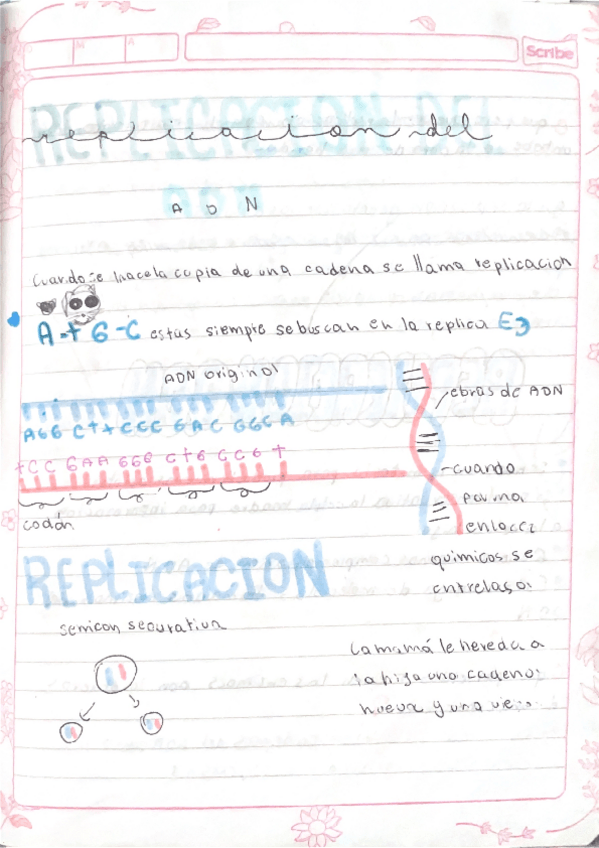 Scribe
replicacion del
A D N
Cuando se hace la copia de una cadena se llama replicacion
A-t G-C estas siempre se buscan en la replica Ej
ADN original
AGG Ctt CCC GAC GGCA
tCC GAA GGG CtG CCGt
codón
ebras de ADN
-cuando
forma
enlaces
quimicos se
entrelasa
REPLICACION
semicon
La mamá le hereda a
la hija una cadena
nueva y una